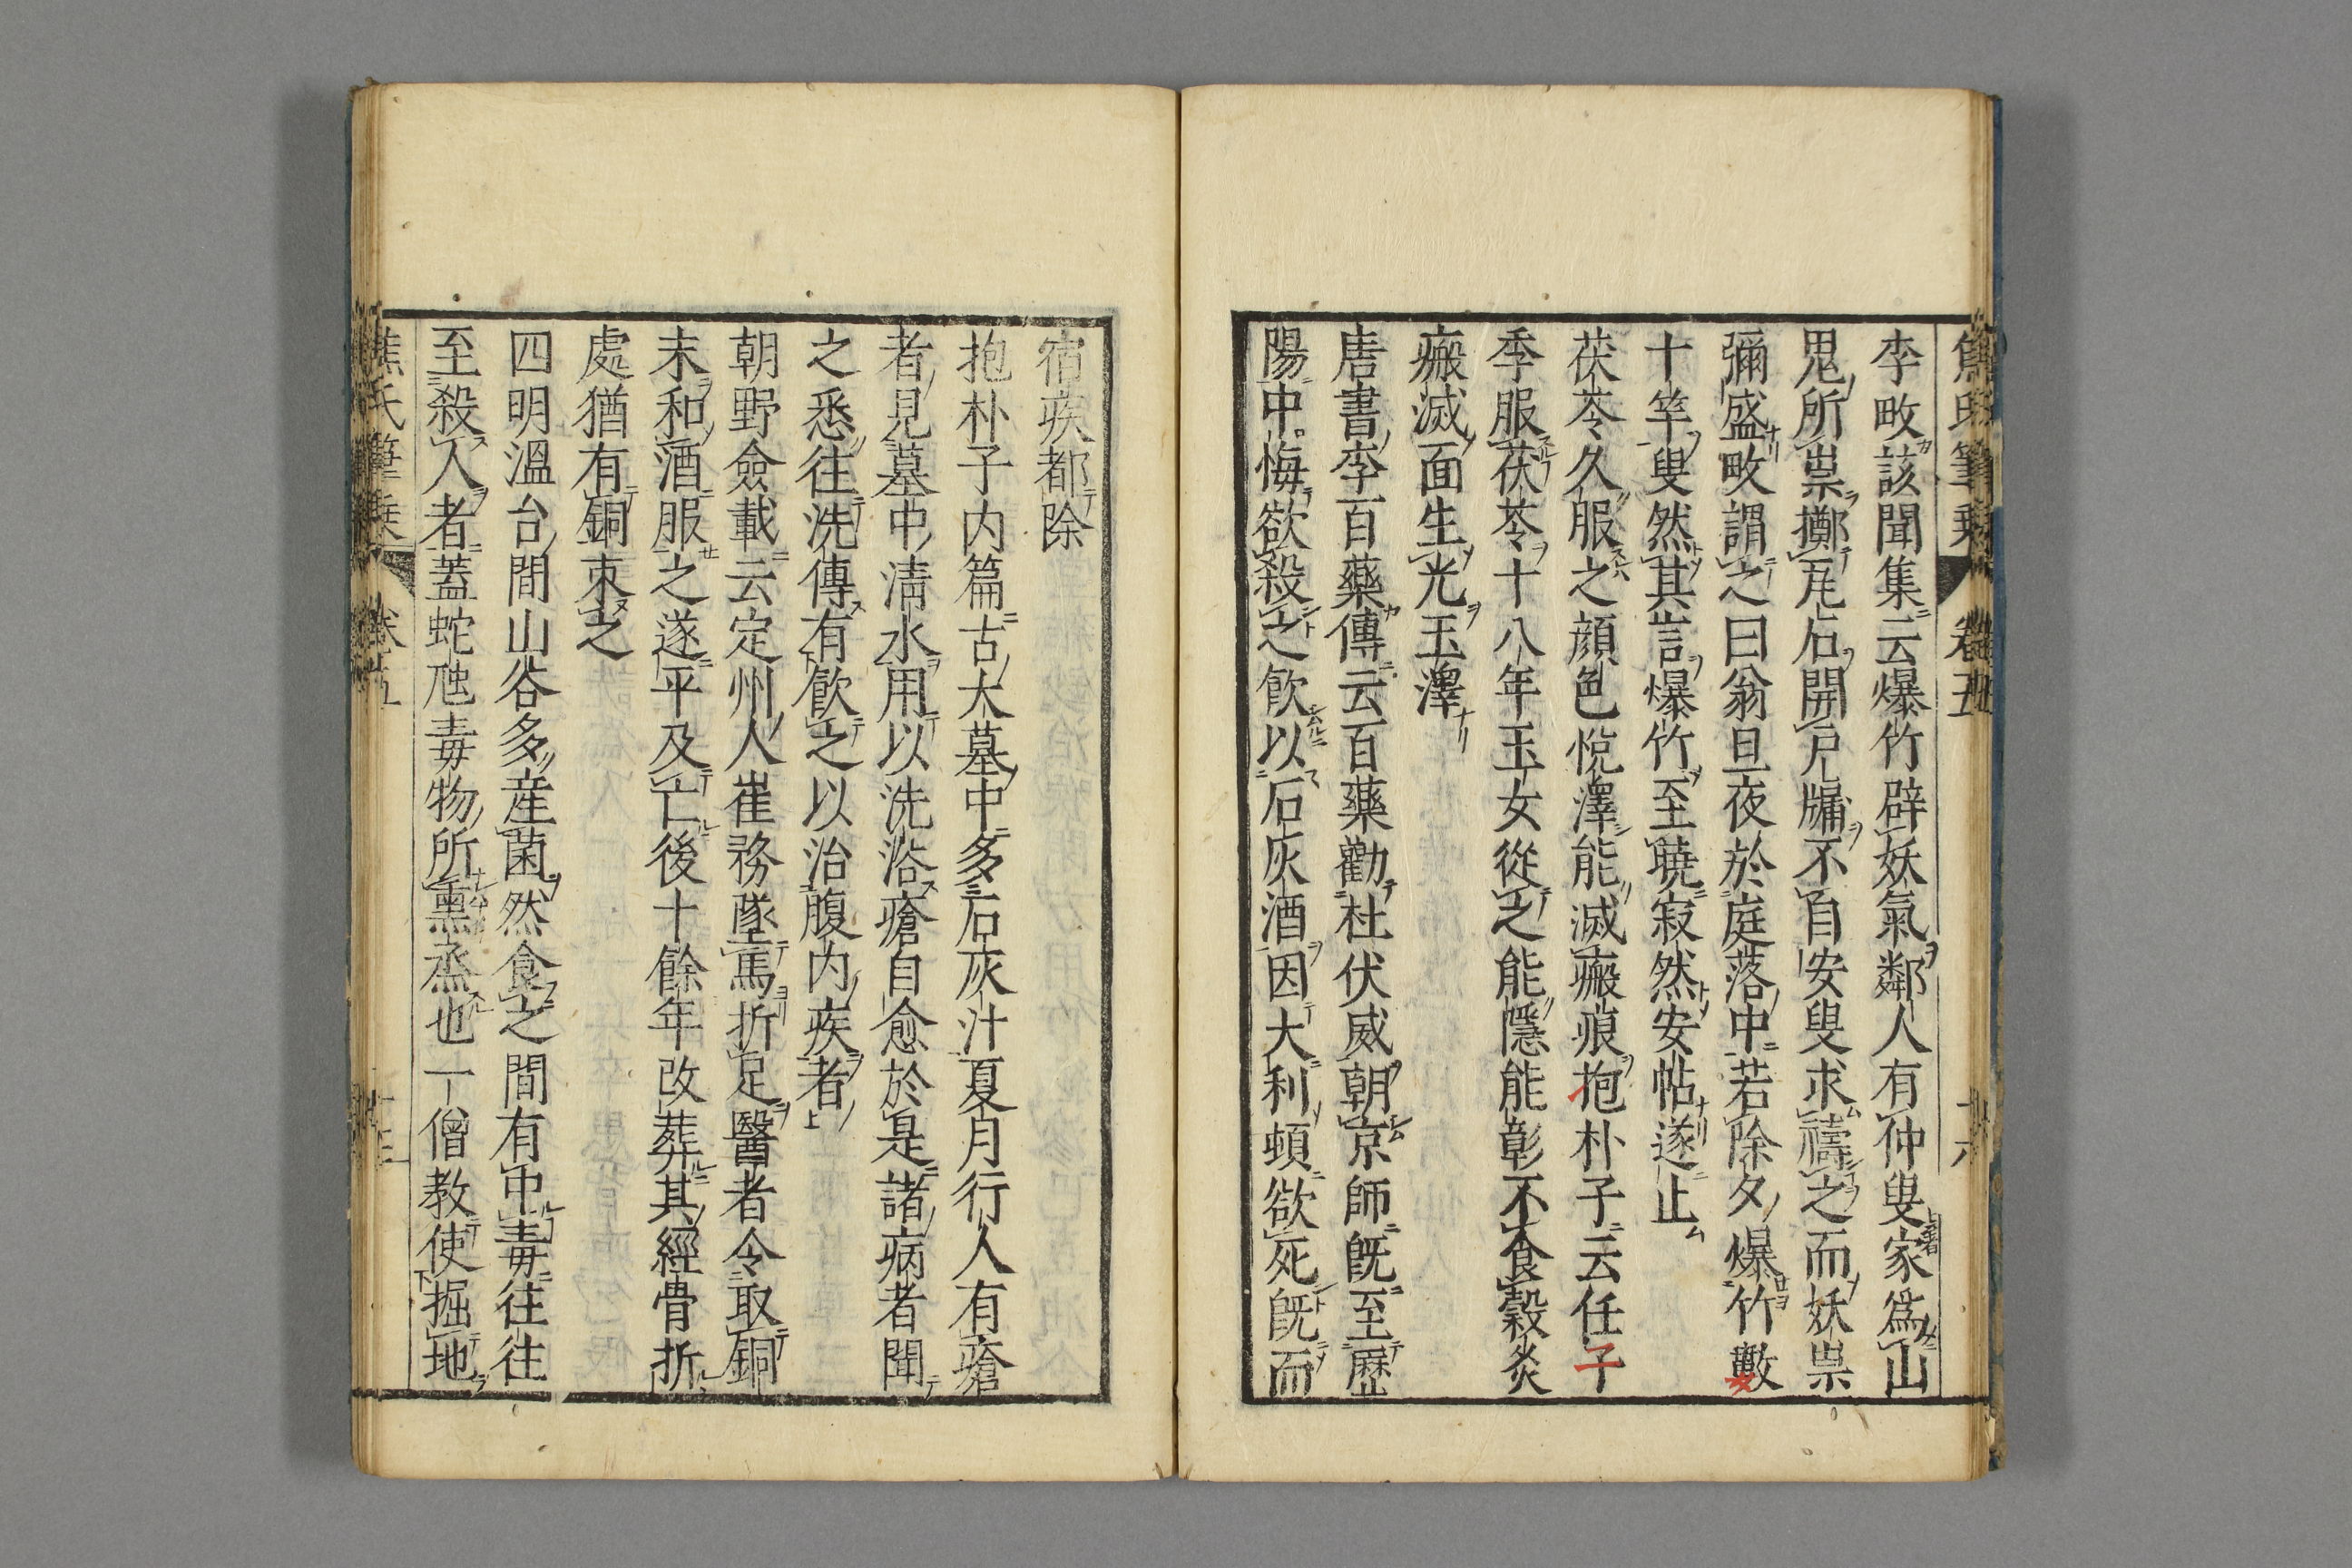 李畋該聞集云爆竹辟妖氣鄰人有仲叟家爲山
鬼所祟擲瓦石開戸牖不自安叟求禱之而妖祟
彌盛畋謂之曰翁旦夜於庭落中若除夕爆竹數
十竿叟然其言爆竹至曉寂然安帖遂止
茯苓久服之顔色悦澤能滅瘢痕抱朴子云任子
季服茯苓十八年玉女從之能隱能彰不食穀灸
瘢滅面生光玉澤
唐書李百藥傳云百藥勸杜伏威朝京師既至歷
陽中悔欲殺之飲以石灰酒因大利頓欲死既而
宿疾都除
抱朴子内篇古大墓中多石灰汁夏月行人有瘡
者見墓中清水用以洗浴瘡自愈於是諸病者聞
之悉往洗傳有飲之以治腹内疾者
朝野僉載云定州人崔務墜馬折足醫者令取銅
末和酒服之遂平及亡後十餘年改葬其經骨折
處猶有銅束之
四明溫台間山谷多産菌然食之間有中毒往往
至殺人者蓋蛇虺毒物所熏蒸也一僧教使掘地
焦氏筆乗 卷五